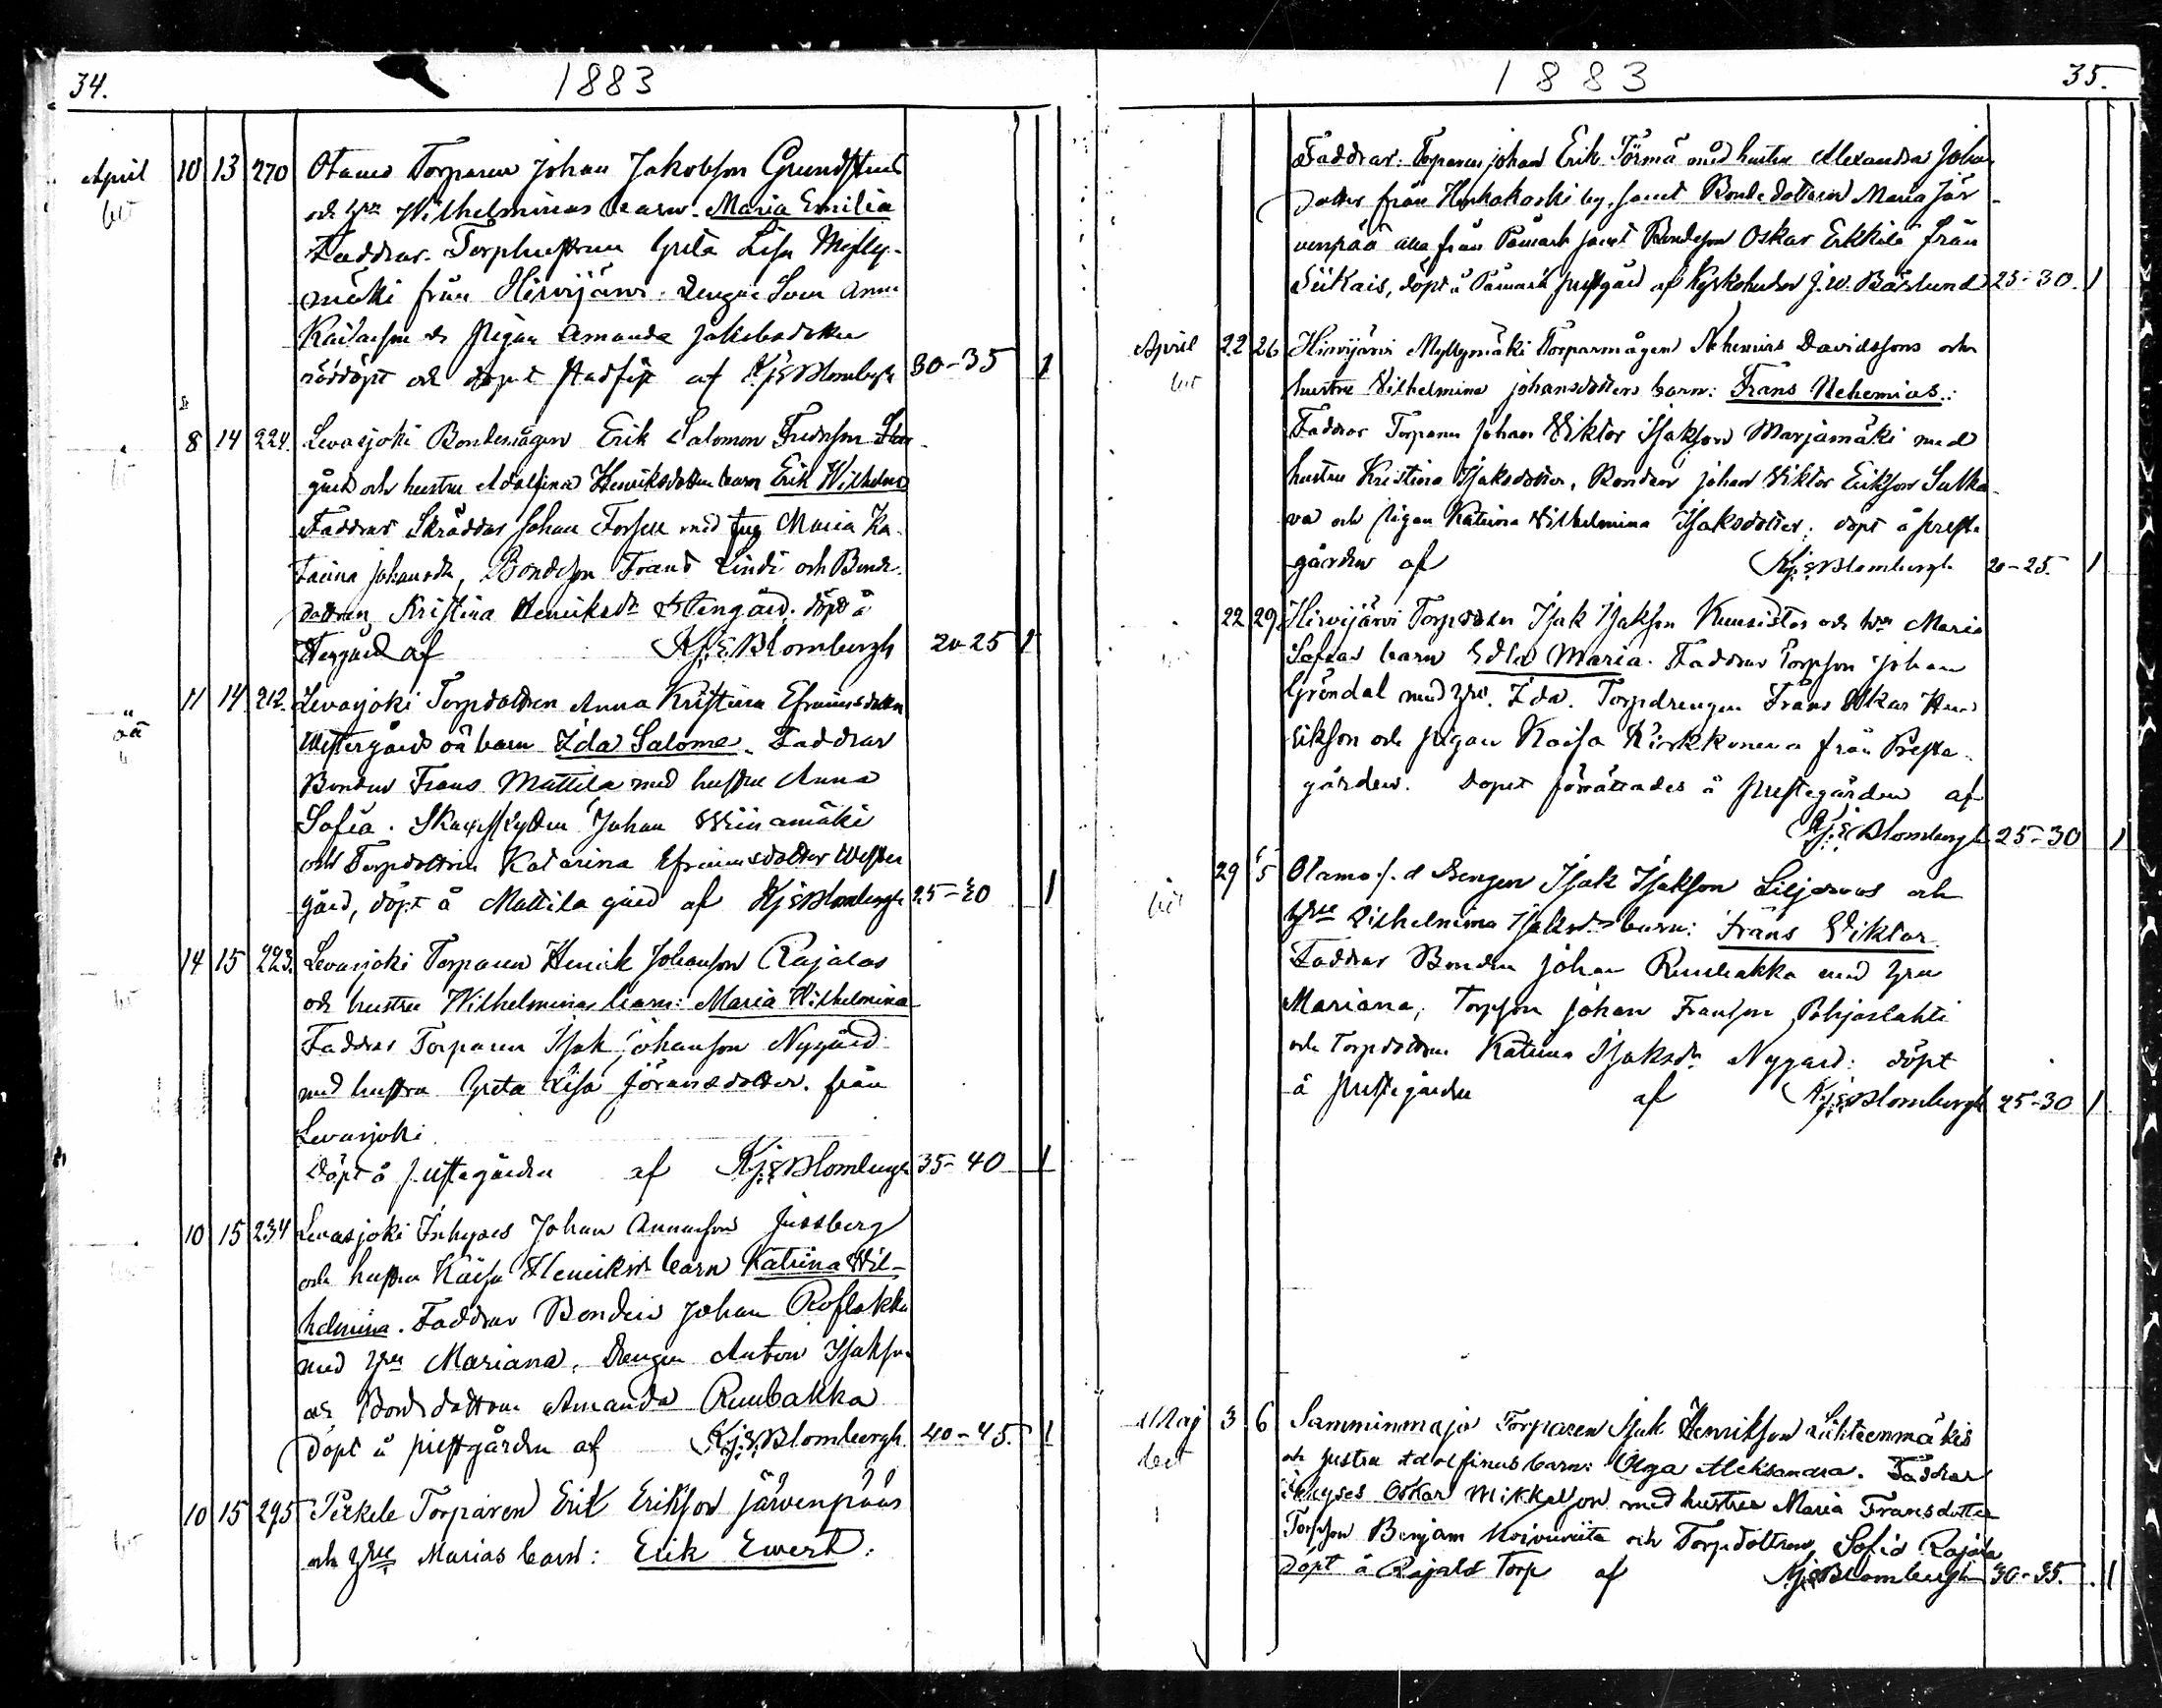 34.
1883
April 10 13 270 Otamo Torparen Johan Jakobson Grundströms
och hru Wilhelminas barn. Maria Emilia
Faddrar. Torphustrun Greta Lisa Mylly-
mäki från Hirvijärvi. Drengen Sven Anne
och Pigan Amanda Jakobsdotter
nöddöpt och dopet stadfäst af Kj: E Blombergh 30-35 1
8 14 224. Levasjoki Bondemågen Erik Salomon Fredrson
gård och hustru Adolfina Henriksdotters barn Erik Wilhelm
Faddrar Skräddar Johan Forsell med Maria Ka-
tarina Johansdr, Bondeson Frans Lindi och Bonde-
dottren Kristina Henriksdr Stengård. döpt å
Stengård af Kj: E. Blombergh 20-25 1
" oä
11 14 212. Levasjoki Torpdottren Anna Kristina Efraimsdotter
Westergårds oä barn Ida Salome. Faddrar
Bonden Frans Mattila med hustru Anna
Sofia. Johan Wiinamäki
och Torpdottren Katarina Efraimsdotter Wester
gård, döpt å Mattila gård af Kj: E Blombergh 25-30 1
14 15 223. Levasjoki Torparen Henrik Johanson Rajalas
och hustru Wilhelminas barn: Maria Wilhelmina
Faddrar Torparen Isak Johanson Nygård
med hustru Greta Lisa Göransdotter. från
Levasjoki
Döpt å prestegården af Kj: E Blombergh 35-40 1
10 15 234 Levasjoki Inhyses Johan Annanson Jussberg
och hustru Kaisa Henriksdr barn Katrina Wil-
helmina. Faddrar Bonden Johan
med hru Mariana. Drengen Anton Isakson
och Bondedottren Amanda Ruubakka
döpt å prestgården af Kj: E. Blombergh 40-45. 1
10 15 295 Torparen Erik Erikson Järvenpääs
och hru Marias barn: Erik Ewert:
1883
35.
Faddrar: Torparen Johan Erik Törmä med hustru Alexandra Johans
dotter från Honkakoski by. samt Bondedottren Maria Jär-
venpää alla från Påmark samt Bondeson Oskar Erkkilä från
Siikais, döpt å Påmark prestgård af Kyrkoherden J. W. Bäcklund 25-30. 1
April 22 26 Hirvijärvi Myllymäki Torparmågen Nehemias Davidssons och
hustru Wilhelmina Johansdotters barn: Frans Nehemias.:
Faddrar Torparen Johan Wiktor Isakson Marjamäki med
hustru Kristina Isaksdotter, Bonden Johan Wiktor Erikson Sulka-
va och pigan Katrina Wilhelmina Isaksdotter; döpt å preste
gården af Kj: E Blombergh 20-25. 1
22 29 Hirvijärvi Isak Isakson Kuusistos och hru Maria
Sofias barn Edla Maria. Faddrar Torpson Johan
Gröndal med hru. Ida. Torpdrengen Frans Oskar Hen
rikson och pigan Kaisa Kirkkonena från Preste
gården. Dopet förrättades å prestegården af
Kj: E Blombergh 25-30 1
29 5 Otamo Drengen Isak Isakson och
hru Wilhelmina Isaksdrs barn: Frans Viktor.
Faddrar Bonden Johan Ruubakka med hru
Mariana, Torpson Johan Franson Pohjaslahti
och Torpdottren Katrina Isaksdr Nygård: döpt
å prestegården af Kj: E Blombergh 25-30 1
Maj 3 6 Samminmaja Torparen Isak Henrikson Lähteenmäkis
och hustru Adolfinas barn: Olga Aleksandra. Faddrar
inhyses Oskar Mikkelson med hustru Maria Fransdotter
Torpson Benjam Koivuniitu och Torpdottren Sofia Rajala
Döpt å Rajala Torp af Kj: E Blombergh 30-35. 1